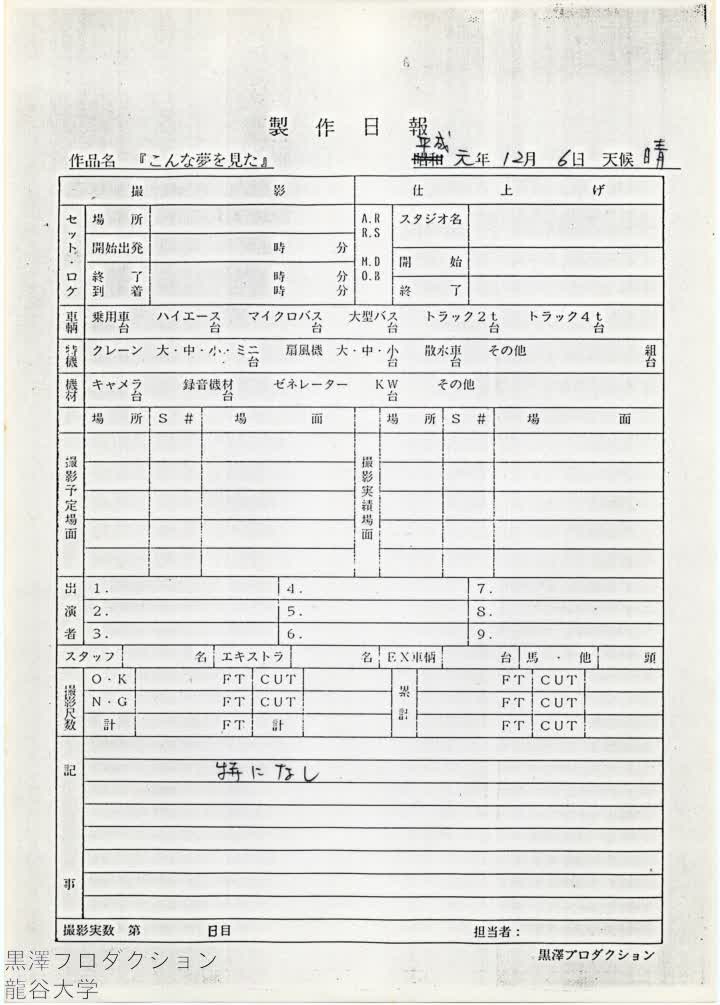 製作日報
作品名 『こんな夢を見た』 昭和 平成 元年 12月 6日 天候 晴
撮影 仕上げ
セット・ロケ 場所 A.R R.S スタジオ名
開始出発 時 分
M.D O.B 開始
終了 時 分
到着 時 分 終了
車輌 乗用車 台 ハイエース 台 マイクロバス 台 大型バス 台 トラック2t 台 トラック4t 台
特機 クレーン 大・中・小・ミニ 台 扇風機 大・中・小 台 散水車 台 その他 組 台
機材 キャメラ 台 録音機材 台 ゼネレーター KW 台 その他
場所 S# 場面 場所 S# 場面
撮影予定場面 撮影実績場面
出演者 1. 4. 7.
2. 5. 8.
3. 6. 9.
スタッフ 名 エキストラ 名 EX車輌 台 馬・他 頭
撮影尺数 O・K FT CUT 累計 FT CUT
N・G FT CUT FT CUT
計 FT 計 FT CUT
記事
特になし
撮影実数 第 日目 担当者:
黒澤プロダクション
黒澤プロダクション
龍谷大学